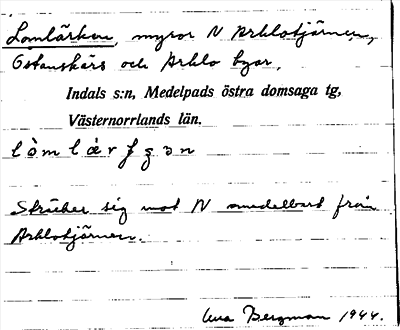 Lomlärken, myror N Arklotjärnen,
Östanskärs och Arklo byar,
Indals s:n, Medelpads östra domsaga tg,
Västernorrlands län.
Sträcker sig mot N omedelbart från
Arklotjärnen.
Bergman 1944.